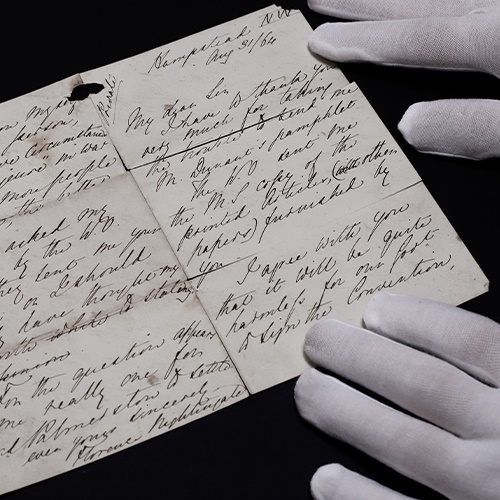 Hampstead NW
Aug 31/64
Private
My dear Sir
I have to thank you
very much for taking
the trouble to send me
M. Dunant's pamphlet.
The W.O. sent me
the M.S. copy of the
printed Articles, (with other
papers) furnished by
you.
I agree with you
that it will be quite
harmless for our Govt
to sign the Convention,
my
circumstances
more people
the better
asked my
by the W.O.
sent me your
or I should
have thought my
while to stating
the question appears
me really one for
Palmerston to settle
ever yours sincerely
Florence Nightingale